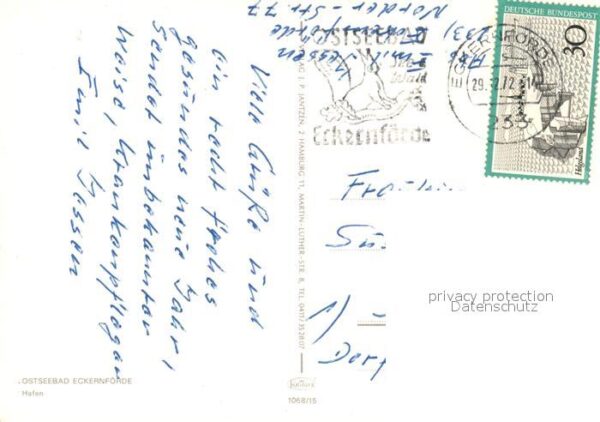 Viele Grüße und
ein recht frohes
gesundes neue Jahr,
sendet unbekannter
Weise, Krankenpfleger
Emil Jessen
Abs. Emil Jessen
(233) Eckernförde
Norder-Str. 77
OSTSEEBAD
See
Wald
Eckernförde
ECKERNFÖRDE
29.12.72
233
DEUTSCHE BUNDESPOST
30
Helgoland
Fräulein
Dorf
privacy protection
Datenschutz
VERLAG J. P. JANTZEN, 2 HAMBURG 11, MARTIN-LUTHER-STR. 8, TEL. 0411/35 28 07
1068/15
OSTSEEBAD ECKERNFÖRDE
Hafen